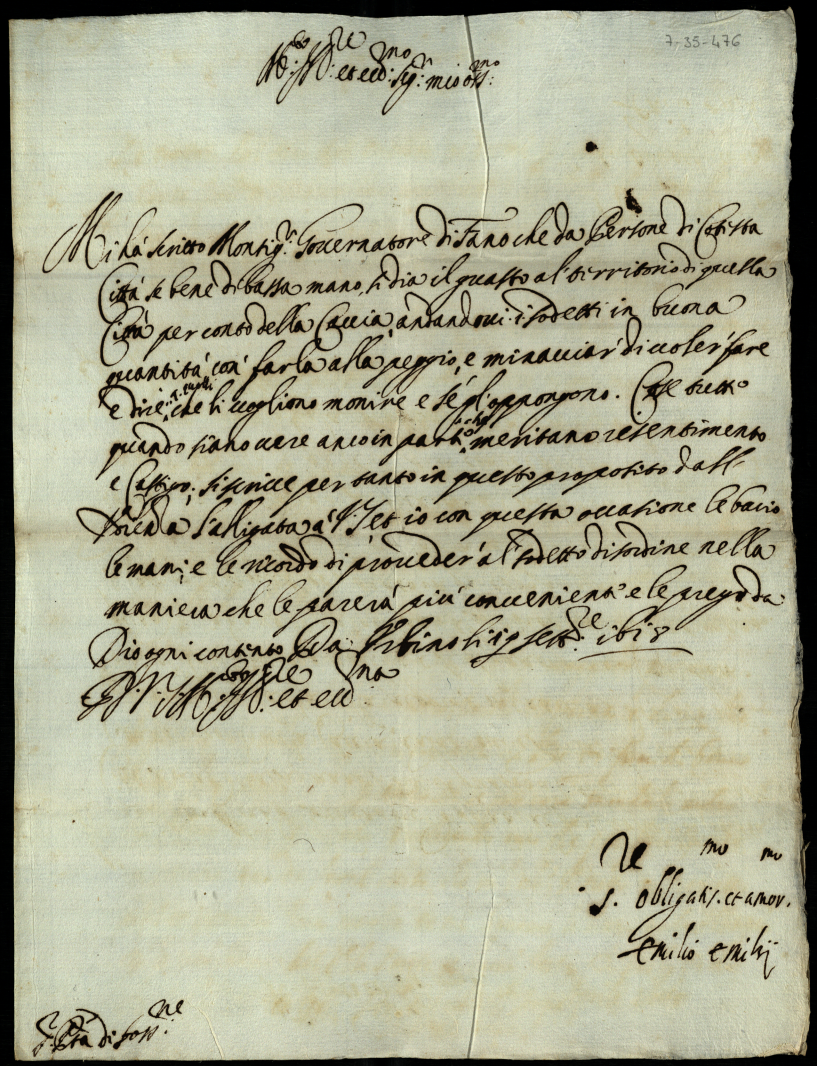 7-35-476
M.to Ill.re et ecc.mo Sig.r mio oss.mo
Mi hà scritto Monsig.r Governatore di Fano che da Persone di Cotesta
Città se bene di bassa mano, si dia il guasto al territorio di quella
Città per conto della Caccia, andandovi i sodetti in buona
quantità con farla alla peggio, e minacciar di voler fare
e dire à quelli che li vogliono monire e se gl'oppongono. Cose tutte
quando siano vere anco in parte che meritano resentimento
e Castigo; si scrive per tanto in questo proposito dall'
l'alligata à V.S. et io con questa occasione le bacio
le mani, e le ricordo di proveder al sodetto disordine nella
maniera che le parerà più conveniente e le prego da
Dio ogni contento Da Urbino li 19 sett.re 1618
Di V.S. M.to Ill.re et ecc.ma
S.re obligatis.mo et amor.mo
Emilio Emilij
S.r P.stà di Foss.ne